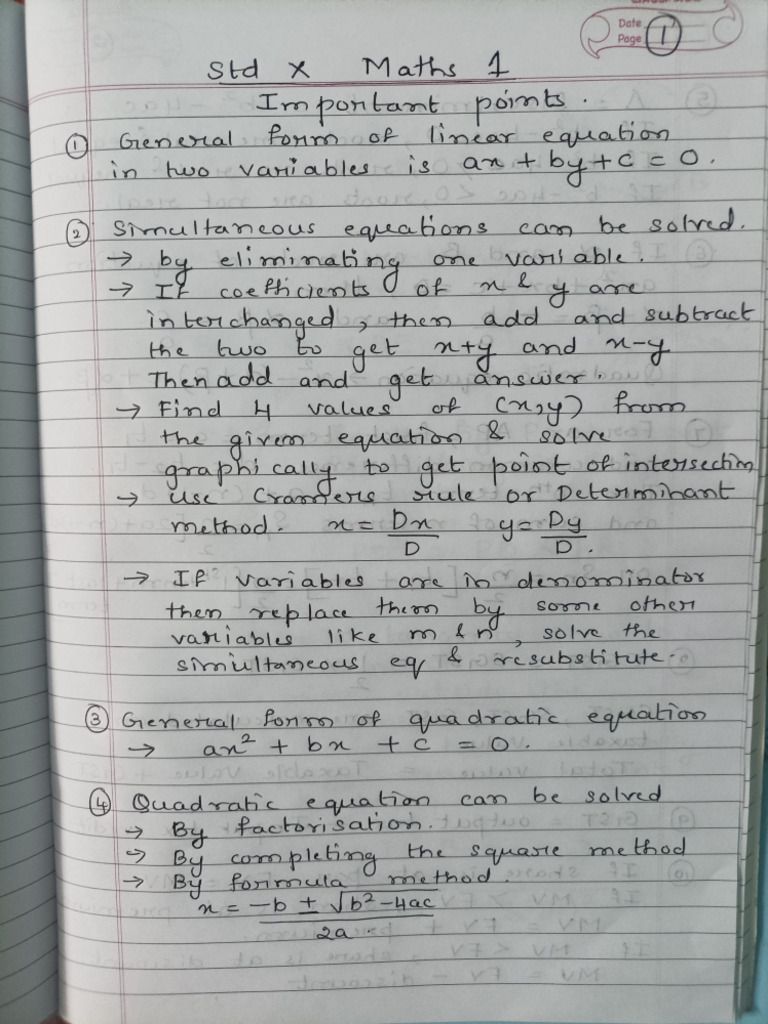 Date
Page 1
Std X Maths 1
Important points.
① General form of linear equation
in two variables is ax + by + c = 0.
② Simultaneous equations can be solved.
→ by eliminating one variable.
→ If coefficients of x & y are
interchanged, then add and subtract
the two to get x+y and x-y
Then add and get answer.
→ Find 4 values of (x,y) from
the given equation & solve
graphically to get point of intersection
→ Use Cramers rule or Determinant
method. x = Dx/D y = Dy/D.
→ If variables are in denominator
then replace them by some other
variables like m & n, solve the
simultaneous eq & resubstitute.
③ General form of quadratic equation
→ ax² + bx + c = 0.
④ Quadratic equation can be solved
→ By factorisation.
→ By completing the square method
→ By formula method.
x = -b ± √b²-4ac
2a.